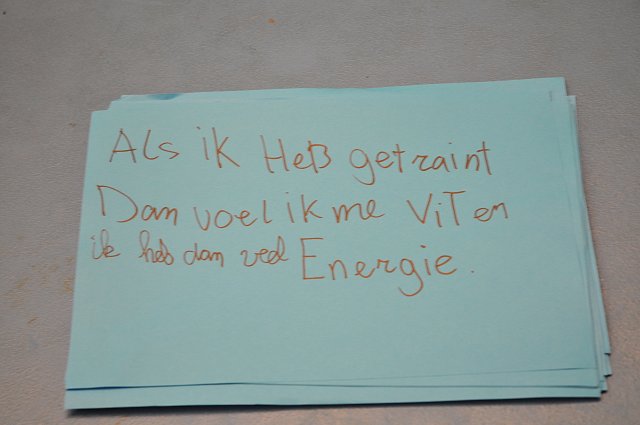 Als ik HeB getraint
Dan voel ik me ViT en
ik heb dan veel Energie.